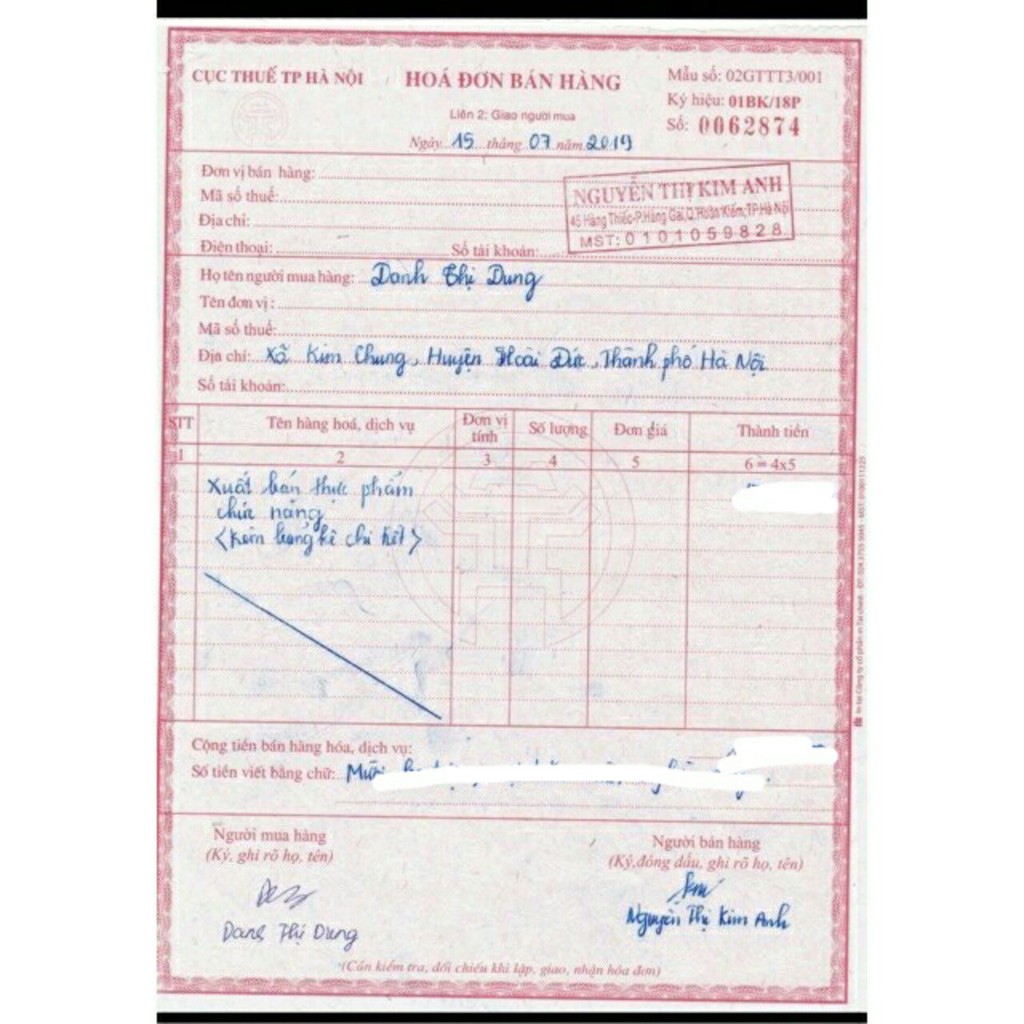 CỤC THUẾ TP HÀ NỘI
HOÁ ĐƠN BÁN HÀNG
Liên 2: Giao người mua
Ngày 15 tháng 07 năm 2019
Mẫu số: 02GTTT3/001
Ký hiệu: 01BK/18P
Số: 0062874
Đơn vị bán hàng:
Mã số thuế:
Địa chỉ:
Điện thoại: Số tài khoản:
NGUYỄN THỊ KIM ANH
45 Hàng Thiếc-P.Hàng Gai,Q.Hoàn Kiếm,TP.Hà Nội
MST: 0101059828
Họ tên người mua hàng: Danh Thị Dung
Tên đơn vị:
Mã số thuế:
Địa chỉ: Xã Kim Chung, Huyện Hoài Đức, Thành phố Hà Nội
Số tài khoản:
STT Tên hàng hoá, dịch vụ Đơn vị tính Số lượng Đơn giá Thành tiền
1 2 3 4 5 6 = 4x5
Xuất bán thực phẩm
chức năng
(Kèm bảng kê chi tiết)
Cộng tiền bán hàng hóa, dịch vụ:
Số tiền viết bằng chữ: Mười
Người mua hàng
(Ký, ghi rõ họ, tên)
Danh Thị Dung
Người bán hàng
(Ký,đóng dấu, ghi rõ họ, tên)
Nguyễn Thị Kim Anh
(Cần kiểm tra, đối chiếu khi lập, giao, nhận hóa đơn)